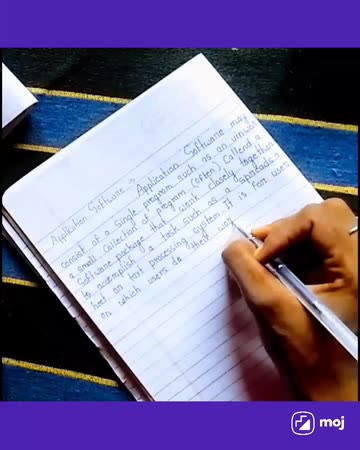 Application Software → Application Software may
consist of a single program such as an
a small collection of program (often) Callend a
Software package that work closely together
to accomplish a task such as a Spreads
heet or text processing system. It is For user
on which users do their wor
moj